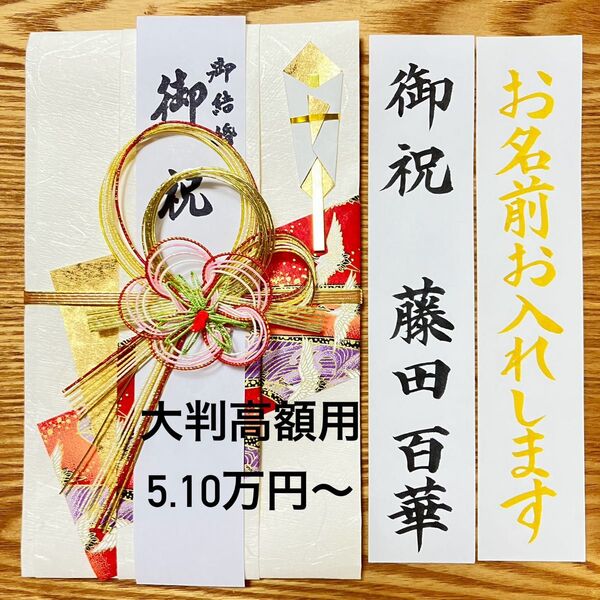 御結婚
御祝
大判高額用
5.10万円～
御祝 藤田百華
お名前お入れします